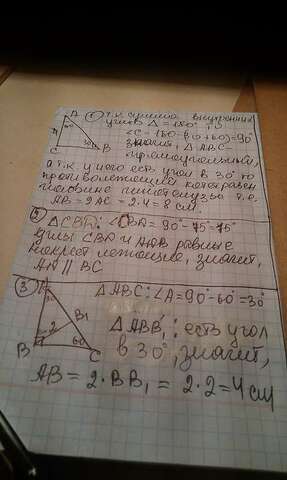 A ① т.к сумма внутренних
углов Δ = 180°, то
∠C = 180-(30+60)=90°
значит, ΔABC-
4
30
C B
прямоугольный,
а т.к у него есть угол в 30° то
противолежащий катет равен
половине гипотенузы т.е.
AB = 2AC = 2·4 = 8 см.
②
ΔCBA: ∠CBA = 90°-75°=75°
углы CBA и равные
накрест лежащие, значит,
|| BC
③ A
ΔABC: ∠A=90°-60°=30°
B₁
2
60
B C
ΔABB₁: есть угол
в 30°, значит,
AB = 2·BB₁ = 2·2=4 см